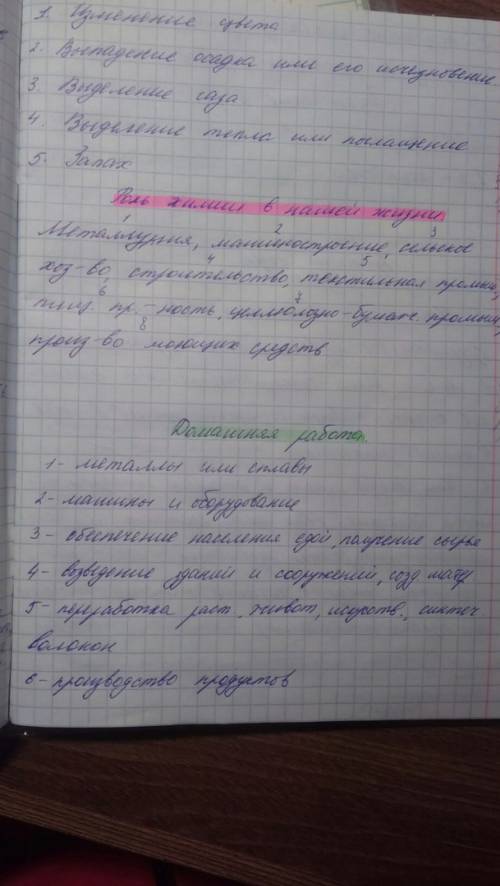 1. Изменение цвета
2. Выпадение осадка или его исчезновение
3. Выделение газа
4. Выделение тепла или поглащение
5. Запах
Роль химии в нашей жизни
1 2 3
Металлургия, машиностроение, сельское
4 5
хоз-во, строительство, текстильная промыш,
6 7
пищ. пр.-ность, целлюлозно-бумажн. промыш,
8
произ-во моющих средств
Домашняя работа
1- металлы или сплавы
2- машины и оборудование
3- обеспечение населения едой, получение сырья
4- возведение зданий и сооружений, созд матер
5- переработка раст., живот, искуств., синтеч
волокон
6- производство продуктов